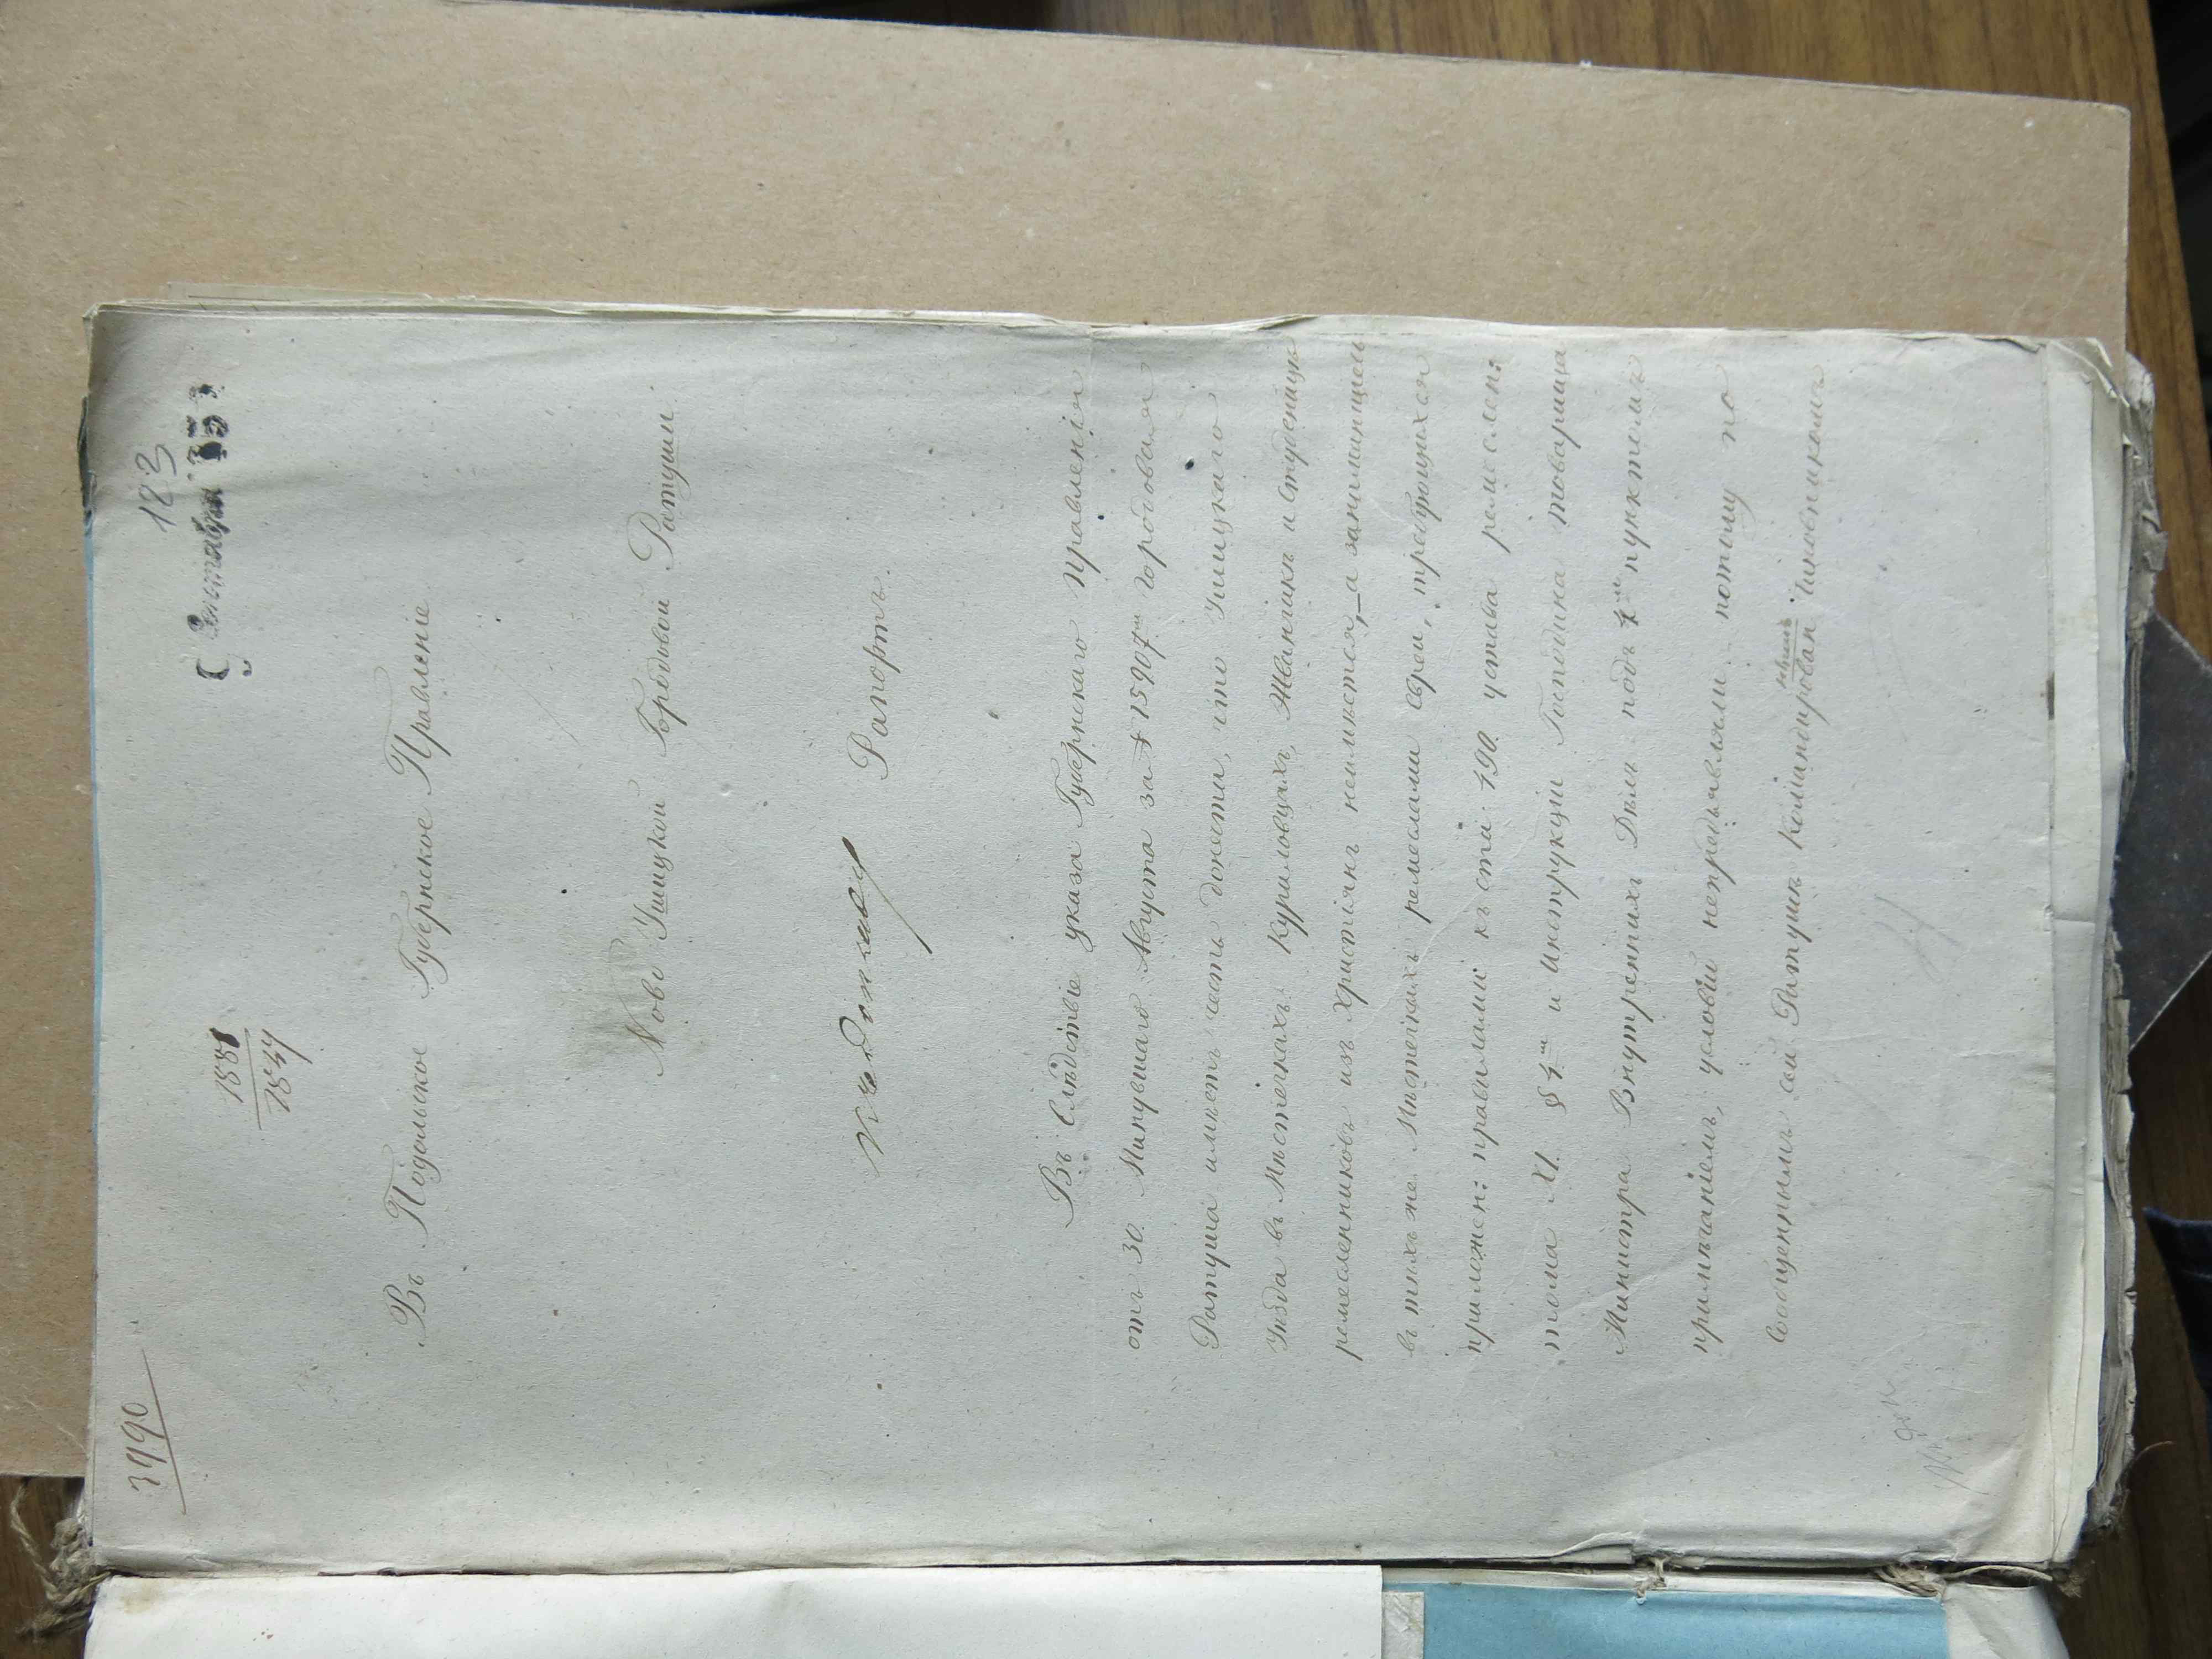 3990
183
Сентября 15
1881
1844
Въ Подольское Губернское Правленіе
Ново Ушицкой Городовой Ратуши
Рапортъ.
Въ Слѣдствіе указа Губернскаго правленія
отъ 30. Минувшаго Августа за № 15907мъ городовая
Ратуша имѣетъ честь донести, что Ушицкаго
Уѣзда въ Мѣстечкахъ: Куриловцахъ, Жванчикѣ и Студеницѣ
ремесленниковъ изъ Христіянъ неимѣется, а занимающіеся
въ тѣхъ же Мѣстечкахъ ремеслами Евреи, требующихся
приложен: правилами къ стті 190. устава ремеслен:
тома XI. § 4м и инструкціи Господина товарища
Министра Внутреннихъ Дѣлъ подъ 4м пунктомъ
примѣчаніемъ, условій непредъявляли потому по
Сообщеннымъ сей Ратушѣ Командированнымъ Чиновникомъ